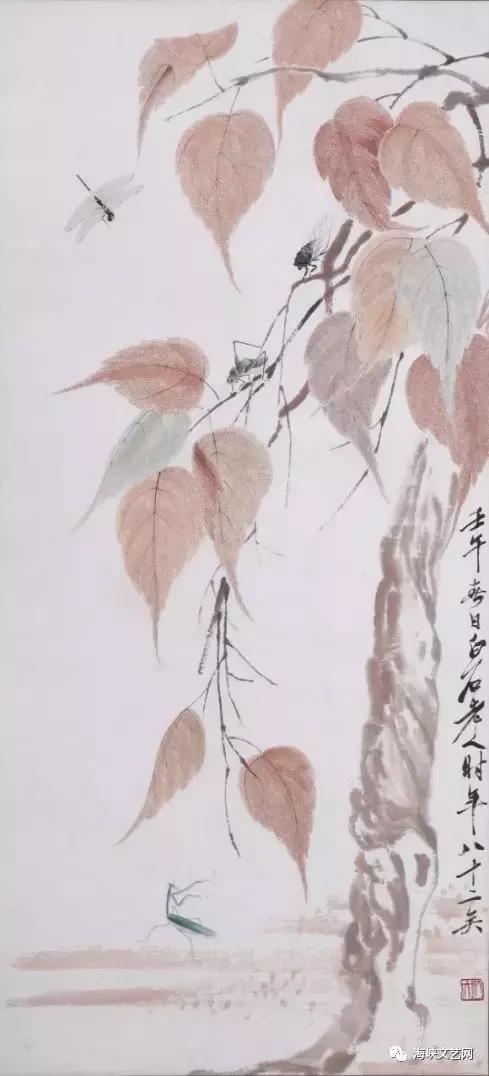 壬午春日白石老人时年八十二矣
海峡文艺网